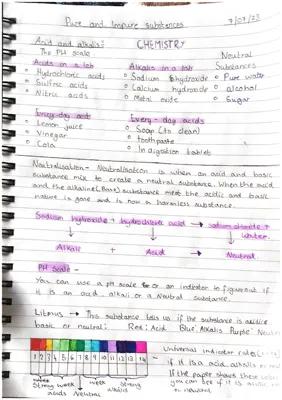 Pure and Impure substances
7/07/23
CHEMISTRY
Acid and alkalis:
The PH scale
Neutral
Substances
Acids in a lab
Alkalis in a lab
Hydrochloric acids
Sodium hydroxide
Pure water
Sulfric acids
Calcium hydroxide
alcohol
Nitric acids
Metal oxide
Sugar
Every-day acids
Every-day acids
Lemon juice
Soap (to clean)
Vinegar
toothpaste
Cola
Indigestion tablet
Neutralisation - Neutralisation is when an acid and basic
substance mix to create a neutral substance. When the acid
and the alkaline (Base) substance meet the acidic and basic
nature is gone and is now a harmless substance.
Sodium hydroxide + hydrochloric acid → sodium chloride +
Water
Alkali + Acid → Neutral
PH scale -
You can use a ph scale or an indicator to figure out if
it is an acid, alkali or a Neutral substance.
Litmus → This substance tells us if the substance is acidic
basic or neutral: Red: Acid Blue: Alkalis Purple: Neutral
1 2 3 4 5 6 7 8 9 10 11 12 13 14
Universal indicator
if it is a acid, alkalis or
If the paper shows these
you can see if it is acidic
or neutral
Strong weak
acids
Neutral
weak Strong
alkalis